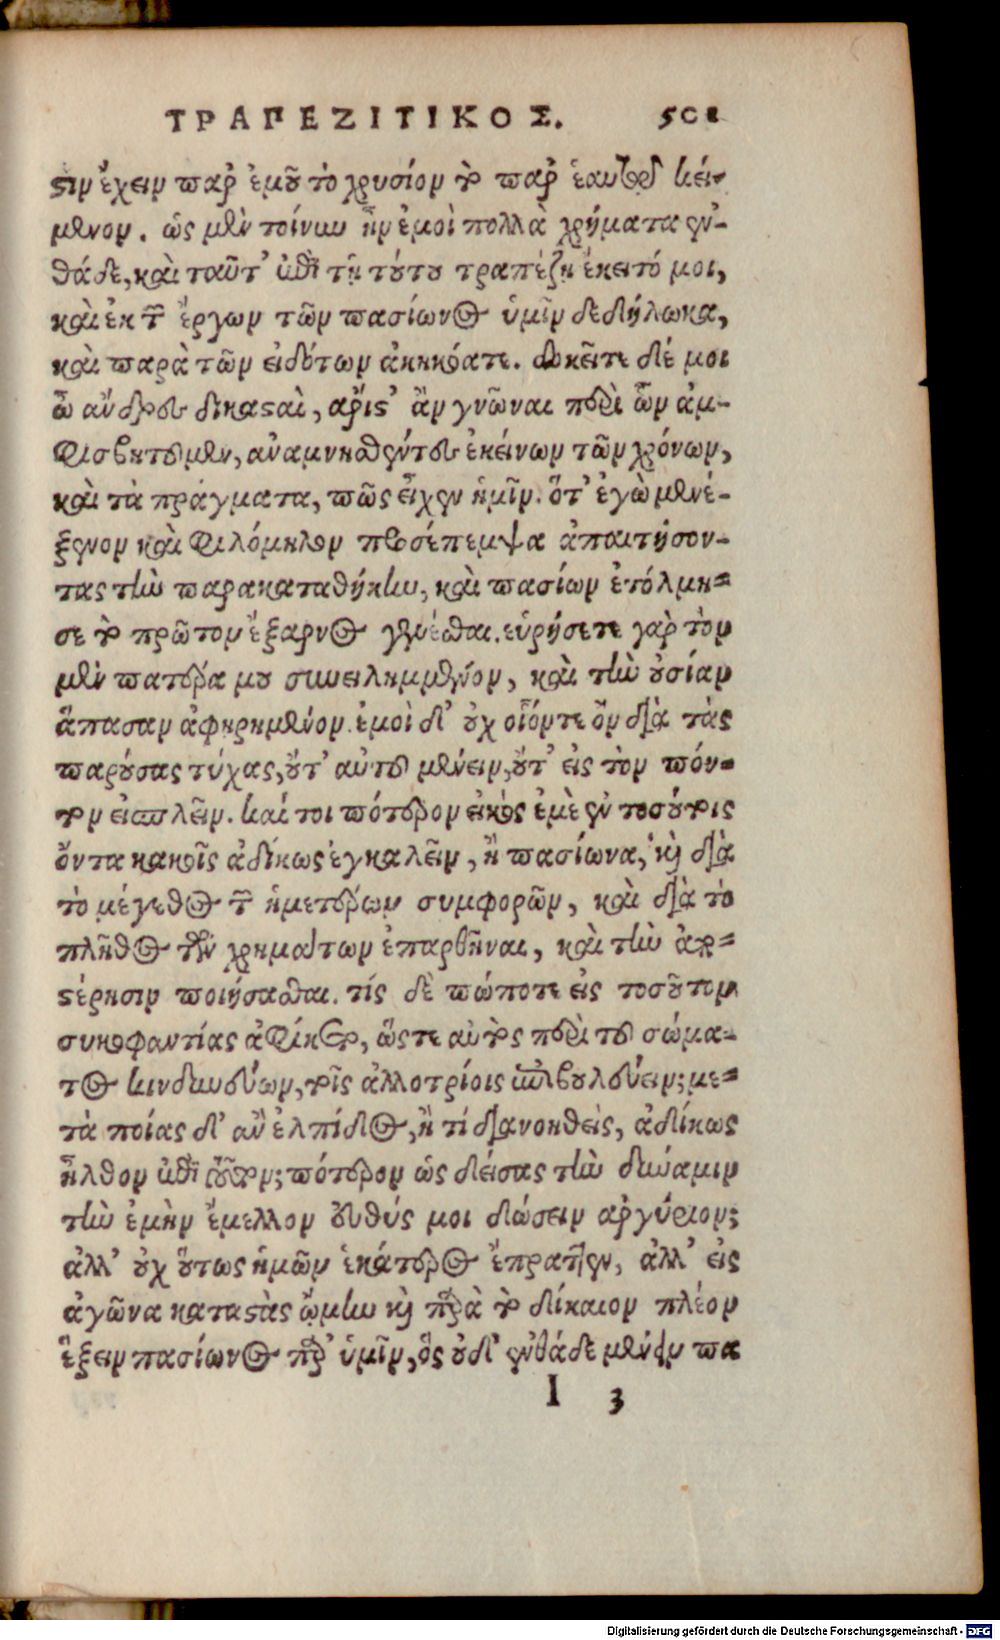 ΤΡΑΠΕΖΙΤΙΚΟΣ. 501
σιν ἔχειν παρ' ἐμοῦ τὸ χρυσίον τὸ παρ' ἑαυτῷ κεί-
μενον. ὡς μὲν τοίνυν ἦν ἐμοὶ πολλὰ χρήματα ἐν-
θάδε, καὶ ταῦτ' ἐπὶ τῇ τούτου τραπέζῃ ἔκειτό μοι,
καὶ ἐκ τῶν ἔργων τῶν πασίωνος ὑμῖν δεδήλωκα,
καὶ παρὰ τῶν εἰδότων ἀκηκόατε. δοκεῖτε δέ μοι
ὦ ἄνδρες δικασταὶ, ἄριστ' ἂν γνῶναι περὶ ὧν ἀμ-
φισβητοῦμεν, ἀναμνησθέντες ἐκείνων τῶν χρόνων,
καὶ τὰ πράγματα, πῶς εἶχεν ἡμῖν. ὅτ' ἐγὼ μενέ-
ξενον καὶ φιλόμηλον προσέπεμψα ἀπαιτήσον-
τας τὴν παρακαταθήκην, καὶ πασίων ἐτόλμη-
σε τὸ πρῶτον ἔξαρνος γενέσθαι. εὑρήσετε γὰρ τὸν
μὲν πατέρα μου συνειλημμένον, καὶ τὴν οὐσίαν
ἅπασαν ἀφῃρημένον. ἐμοὶ δ' οὐχ οἷόντε ὂν διὰ τὰς
παρούσας τύχας, οὔτ' αὐτοῦ μένειν, οὔτ' εἰς τὸν πόν-
τον εἰσπλεῖν. καί τοι πότερον εἰκὸς ἐμὲ ἐν τοσούτοις
ὄντα κακοῖς ἀδίκως ἐγκαλεῖν, ἢ πασίωνα, καὶ διὰ
τὸ μέγεθος τῶν ἡμετέρων συμφορῶν, καὶ διὰ τὸ
πλῆθος τῶν χρημάτων ἐπαρθῆναι, καὶ τὴν ἀπο-
στέρησιν ποιήσασθαι. τίς δὲ πώποτε εἰς τοσοῦτον
συκοφαντίας ἀφίκετο, ὥστε αὐτὸς περὶ τοῦ σώμα-
τος κινδυνεύων, τοῖς ἀλλοτρίοις ἐπιβουλεύειν; με-
τὰ ποίας δ' ἂν ἐλπίδος, ἢ τί διανοηθεὶς, ἀδίκως
ἦλθον ἐπὶ τοῦτον; πότερον ὡς δείσας τὴν δύναμιν
τὴν ἐμὴν ἔμελλον εὐθύς μοι δώσειν ἀργύριον;
ἀλλ' οὐχ οὕτως ἡμῶν ἑκάτερος ἔπραττεν, ἀλλ' εἰς
ἀγῶνα καταστὰς ᾤμην καὶ παρὰ τὸ δίκαιον πλέον
ἕξειν πασίωνος παρ' ὑμῖν, ὃς οὐδ' ἐνθάδε μένειν πα
I 3
Digitalisierung gefördert durch die Deutsche Forschungsgemeinschaft - DFG